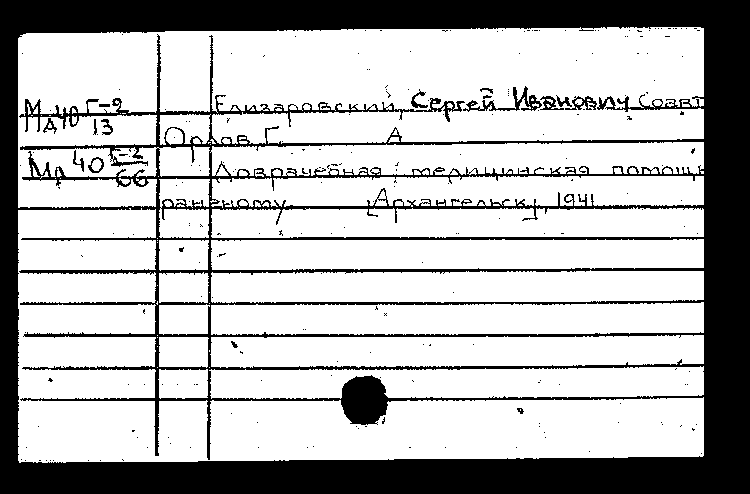 Мд40 Г-2/13 Елизаровский, Сергей Иванович Соавт
Орлов, Г. А
Мд 40 Г-2/66 Доврачебная медицинская помощь
раненому [Архангельск], 1941